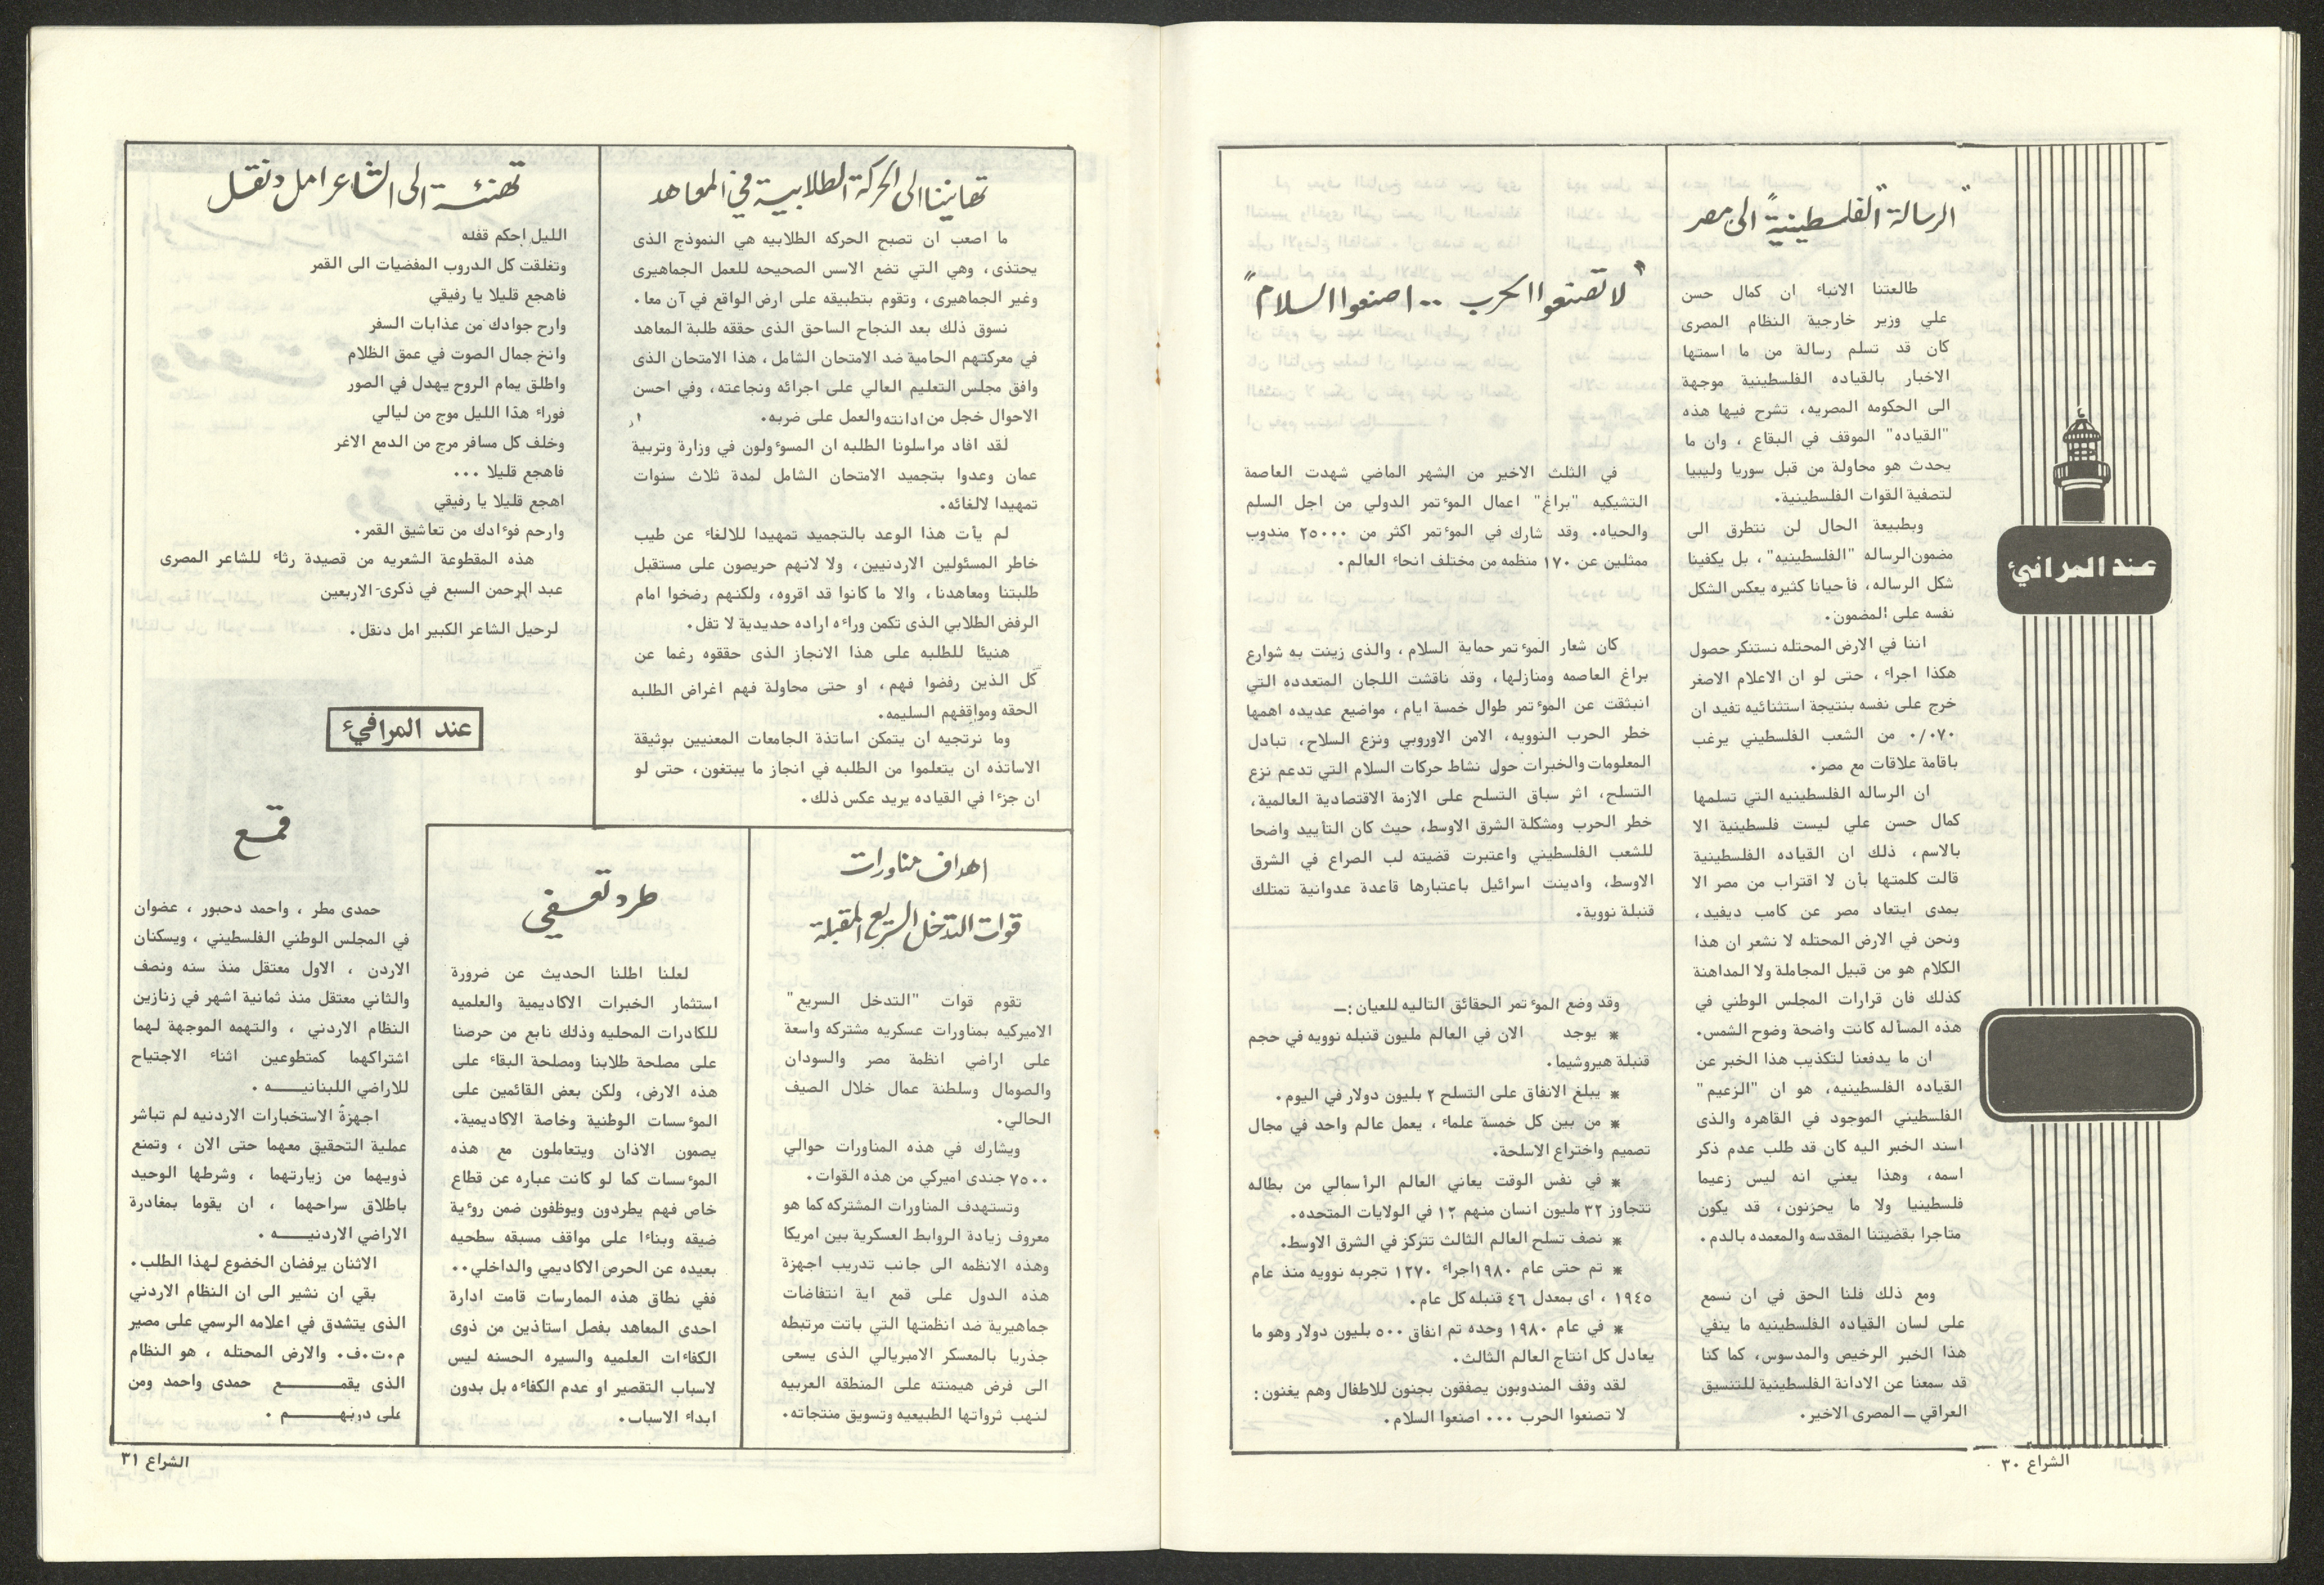 عند المرافئ
"الرسالة" الفلسطينية" الى مصر
طالعتنا الانباء ان كمال حسن
علي وزير خارجية النظام المصرى
كان قد تسلم رسالة من ما اسمتها
الاخبار بالقياده الفلسطينية موجهة
الى الحكومه المصريه، تشرح فيها هذه
"القياده" الموقف في البقاع ، وان ما
يحدث هو محاولة من قبل سوريا وليبيا
لتصفية القوات الفلسطينية.
وبطبيعة الحال لن نتطرق الى
مضمون الرساله "الفلسطينيه"، بل يكفينا
شكل الرساله، فأحيانا كثيره يعكس الشكل
نفسه على المضمون.
اننا في الارض المحتله نستنكر حصول
هكذا اجراء ، حتى لو ان الاعلام الاصغر
خرج على نفسه بنتيجة استثنائيه تفيد ان
٠/٠٧٠ من الشعب الفلسطيني يرغب
باقامة علاقات مع مصر.
ان الرساله الفلسطينيه التي تسلمها
كمال حسن علي ليست فلسطينية الا
بالاسم، ذلك ان القياده الفلسطينية
قالت كلمتها بأن لا اقتراب من مصر الا
بمدى ابتعاد مصر عن كامب ديفيد،
ونحن في الارض المحتله لا نشعر ان هذا
الكلام هو من قبيل المجاملة ولا المداهنة
كذلك فان قرارات المجلس الوطني في
هذه المسأله كانت واضحة وضوح الشمس.
ان ما يدفعنا لتكذيب هذا الخبر عن
القياده الفلسطينيه، هو ان "الزعيم"
الفلسطيني الموجود في القاهره والذى
اسند الخبر اليه كان قد طلب عدم ذكر
اسمه، وهذا يعني انه ليس زعيما
فلسطينيا ولا ما يحزنون، قد يكون
متاجرا بقضيتنا المقدسه والمعمده بالدم.
ومع ذلك فلنا الحق في ان نسمع
على لسان القياده الفلسطينيه ما ينفي
هذا الخبر الرخيص والمدسوس، كما كنا
قد سمعنا عن الادانة الفلسطينية للتنسيق
العراقي – المصرى الاخير.
"لا تصنعوا الحرب .. اصنعوا السلام"
في الثلث الاخير من الشهر الماضي شهدت العاصمة
التشيكيه "براغ" اعمال المؤتمر الدولي من اجل السلم
والحياه. وقد شارك في المؤتمر اكثر من ٢٥٠٠٠ مندوب
ممثلين عن ١٧٠ منظمه من مختلف انحاء العالم.
كان شعار المؤتمر حماية السلام ، والذى زينت به شوارع
براغ العاصمه ومنازلها، وقد ناقشت اللجان المتعدده التي
انبثقت عن المؤتمر طوال خمسة ايام، مواضيع عديده اهمها
خطر الحرب النوويه، الامن الاوروبي ونزع السلاح، تبادل
المعلومات والخبرات حول نشاط حركات السلام التي تدعم نزع
التسلح، اثر سباق التسلح على الازمة الاقتصادية العالمية،
خطر الحرب ومشكلة الشرق الاوسط، حيث كان التأييد واضحا
للشعب الفلسطيني واعتبرت قضيته لب الصراع في الشرق
الاوسط، وادينت اسرائيل باعتبارها قاعدة عدوانية تمتلك
قنبلة نووية.
وقد وضع المؤتمر الحقائق التاليه للعيان :–
* يوجد الان في العالم مليون قنبله نوويه في حجم
قنبلة هيروشيما.
* يبلغ الانفاق على التسلح ٢ بليون دولار في اليوم.
* من بين كل خمسة علماء ، يعمل عالم واحد في مجال
تصميم واختراع الاسلحة.
* في نفس الوقت يعاني العالم الرأسمالي من بطاله
تتجاوز ٣٢ مليون انسان منهم ١٢ في الولايات المتحده.
* نصف تسلح العالم الثالث تتركز في الشرق الاوسط.
* تم حتى عام ١٩٨٠ اجراء ١٢٧٠ تجربه نوويه منذ عام
١٩٤٥ ، اى بمعدل ٤٦ قنبله كل عام.
* في عام ١٩٨٠ وحده تم انفاق ٥٠٠ بليون دولار وهو ما
يعادل كل انتاج العالم الثالث.
لقد وقف المندوبون يصفقون بجنون للاطفال وهم يغنون:
لا تصنعوا الحرب ... اصنعوا السلام.
الشراع ٣٠
تهانينا الى الحركة الطلابية في المعاهد
ما اصعب ان تصبح الحركه الطلابيه هي النموذج الذى
يحتذى، وهي التي تضع الاسس الصحيحه للعمل الجماهيرى
وغير الجماهيرى، وتقوم بتطبيقه على ارض الواقع في آن معا.
نسوق ذلك بعد النجاح الساحق الذى حققه طلبة المعاهد
في معركتهم الحامية ضد الامتحان الشامل، هذا الامتحان الذى
وافق مجلس التعليم العالي على اجرائه ونجاعته، وفي احسن
الاحوال خجل من ادانته والعمل على ضربه.
لقد افاد مراسلونا الطلبه ان المسوءولون في وزارة وتربية
عمان وعدوا بتجميد الامتحان الشامل لمدة ثلاث سنوات
تمهيدا لالغائه.
لم يأت هذا الوعد بالتجميد تمهيدا للالغاء عن طيب
خاطر المسئولين الاردنيين، ولا لانهم حريصون على مستقبل
طلبتنا ومعاهدنا، والا ما كانوا قد اقروه، ولكنهم رضخوا امام
الرفض الطلابي الذى تكمن وراءه اراده حديدية لا تفل.
هنيئا للطلبه على هذا الانجاز الذى حققوه رغما عن
كل الذين رفضوا فهم، او حتى محاولة فهم اغراض الطلبه
الحقه ومواقفهم السليمه.
وما نرتجيه ان يتمكن اساتذة الجامعات المعنيين بوثيقة
الاساتذه ان يتعلموا من الطلبه في انجاز ما يبتغون، حتى لو
ان جزءا في القياده يريد عكس ذلك.
تهنئة الى الشاعر امل دنقل
الليل احكم قفله
وتغلقت كل الدروب المفضيات الى القمر
فاهجع قليلا يا رفيقي
وارح جوادك من عذابات السفر
وانخ جمال الصوت في عمق الظلام
واطلق يمام الروح يهدل في الصور
فوراء هذا الليل موج من ليالي
وخلف كل مسافر مرج من الدمع الاغر
فاهجع قليلا ...
اهجع قليلا يا رفيقي
وارحم فوءادك من تعاشيق القمر.
هذه المقطوعة الشعريه من قصيدة رثاء للشاعر المصرى
عبد الرحمن السبع في ذكرى الاربعين
لرحيل الشاعر الكبير امل دنقل.
عند المرافئ
اهداف مناورات
قوات التدخل السريع المقبلة
تقوم قوات "التدخل السريع"
الاميركيه بمناورات عسكريه مشتركه واسعة
على اراضي انظمة مصر والسودان
والصومال وسلطنة عمال خلال الصيف
الحالي.
ويشارك في هذه المناورات حوالي
٧٥٠٠ جندى اميركي من هذه القوات.
وتستهدف المناورات المشتركه كما هو
معروف زيادة الروابط العسكرية بين امريكا
وهذه الانظمه الى جانب تدريب اجهزة
هذه الدول على قمع اية انتفاضات
جماهيرية ضد انظمتها التي باتت مرتبطه
جذريا بالمعسكر الامبريالي الذى يسعى
الى فرض هيمنته على المنطقه العربيه
لنهب ثرواتها الطبيعيه وتسويق منتجاته.
طرد تعسفي
لعلنا اطلنا الحديث عن ضرورة
استثمار الخبرات الاكاديمية والعلميه
للكادرات المحليه وذلك نابع من حرصنا
على مصلحة طلابنا ومصلحة البقاء على
هذه الارض، ولكن بعض القائمين على
الموءسسات الوطنية وخاصة الاكاديمية.
يصمون الاذان ويتعاملون مع هذه
الموءسسات كما لو كانت عباره عن قطاع
خاص فهم يطردون ويوظفون ضمن روءية
ضيقه وبناءا على مواقف مسبقه سطحيه
بعيده عن الحرص الاكاديمي والداخلي..
ففي نطاق هذه الممارسات قامت ادارة
احدى المعاهد بفصل استاذين من ذوى
الكفاءات العلميه والسيره الحسنه ليس
لاسباب التقصير او عدم الكفاءه بل بدون
ابداء الاسباب.
قمع
حمدى مطر ، واحمد دحبور ، عضوان
في المجلس الوطني الفلسطيني ، ويسكنان
الاردن ، الاول معتقل منذ سنه ونصف
والثاني معتقل منذ ثمانية اشهر في زنازين
النظام الاردني ، والتهمه الموجهة لهما
اشتراكهما كمتطوعين اثناء الاجتياح
للاراضي اللبنانيـــه .
اجهزة الاستخبارات الاردنيه لم تباشر
عملية التحقيق معهما حتى الان ، وتمنع
ذويهما من زيارتهما ، وشرطها الوحيد
باطلاق سراحهما ، ان يقوما بمغادرة
الاراضي الاردنيـــه .
الاثنان يرفضان الخضوع لهذا الطلب.
بقي ان نشير الى ان النظام الاردني
الذى يتشدق في اعلامه الرسمي على مصير
م.ت.ف. والارض المحتله ، هو النظام
الذى يقمـــع حمدى واحمد ومن
على دربهـــم .
الشراع ٣١